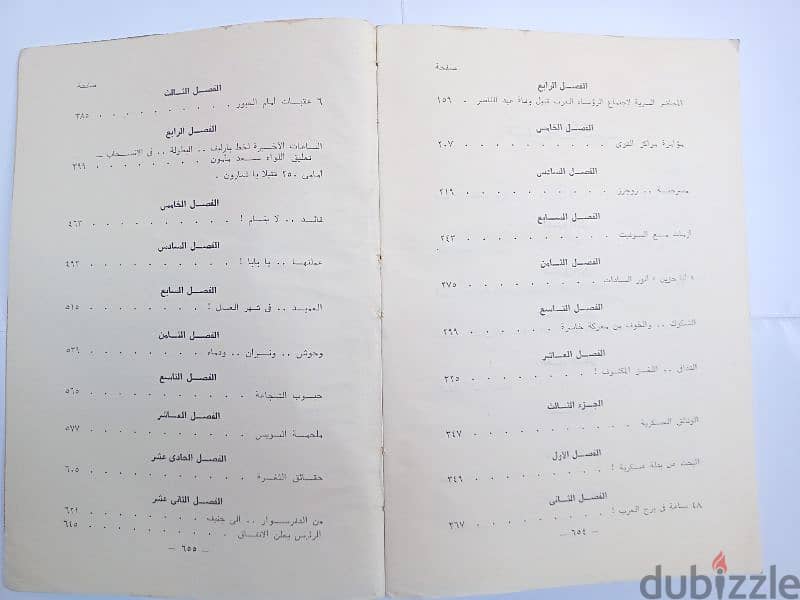 صفحة
الفصل الرابع
المحاضر السرية لاجتماع الرؤساء العرب قبل وفاة عبد الناصر . ١٥٩
الفصل الخامس
مؤامرة مراكز القوى . . . . . . . . ٢٠٧
الفصل السادس
مسرحية .. روجرز . . . . . . . . ٢١٩
الفصل السابع
أزمات مع السوفيت . . . . . . . . ٢٤٣
الفصل الثامن
أنور السادات . . . . . . . . ٢٧٥
الفصل التاسع
الشكوك .. والخوف من معركة خاسرة . . . . ٢٩٩
الفصل العاشر
اللغز المكشوف ! . . . . . . . ٣٢٥
الجزء الثالث
الوثائق العسكرية . . . . . . . . ٣٤٧
الفصل الأول
البحث عن بدلة عسكرية ! . . . . . . . ٣٤٩
الفصل الثانى
٤٨ ساعة فى برج العرب ! . . . . . . . ٣٦٧
— ٦٥٤ —
صفحة
الفصل الثالث
٦ عقبات أمام العبور . . . . . . . . ٣٨٥
الفصل الرابع
الساعات الأخيرة لخط بارليف .. البطولة .. فى الانسحاب —
تعليق اللواء سعد مأمون . . . . . . . ٣٩٩
أمامى ٢٥٠ قتيلا يا شارون .
الفصل الخامس
قائد .. لا ينام ! . . . . . . . . ٤٦٣
الفصل السادس
عملتها .. يا بابا ! . . . . . . . . ٤٩٣
الفصل السابع
العميد .. فى شهر العسل ! . . . . . . . ٥١٥
الفصل الثامن
وحوش .. ونيران .. ودماء . . . . . . . ٥٣٩
الفصل التاسع
حروب الشجاعة . . . . . . . . ٥٦٥
الفصل العاشر
ملحمة السويس . . . . . . . . ٥٧٧
الفصل الحادى عشر
حقائق الثغرة . . . . . . . . ٦٠٥
الفصل الثانى عشر
من الدفرسوار .. الى جنيف . . . . . . . ٦٢١
الرئيس يعلن الاتفاق . . . . . . . ٦٤٥
— ٦٥٥ —
dubizzle